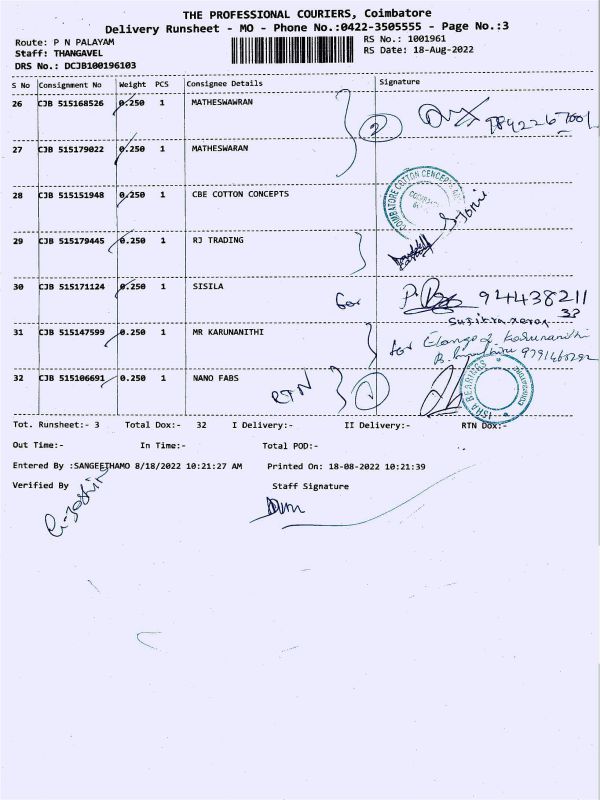 THE PROFESSIONAL COURIERS, Coimbatore
Delivery Runsheet - MO - Phone No.:0422-3505555 - Page No.:3
Route: P N PALAYAM
RS No.: 1001961
Staff: THANGAVEL
RS Date: 18-Aug-2022
DRS No.: DCJB100196103
S No Consignment No Weight PCS Consignee Details Signature
26 CJB 515168526 0.250 1 MATHESWAWRAN
2 9842267001
27 CJB 515179022 0.250 1 MATHESWARAN
28 CJB 515151948 0.250 1 CBE COTTON CONCEPTS
COIMBATORE COTTON CONCEPTS
29 CJB 515179445 0.250 1 RJ TRADING
30 CJB 515171124 0.250 1 SISILA
for 94438211
33
31 CJB 515147599 0.250 1 MR KARUNANITHI
for Elango
32 CJB 515106691 0.250 1 NANO FABS
RTN
ISRA BEARINGS
Tot. Runsheet:- 3 Total Dox:- 32 I Delivery:- II Delivery:- RTN Dox:-
Out Time:- In Time:- Total POD:-
Entered By :SANGEETHAMO 8/18/2022 10:21:27 AM Printed On: 18-08-2022 10:21:39
Verified By Staff Signature